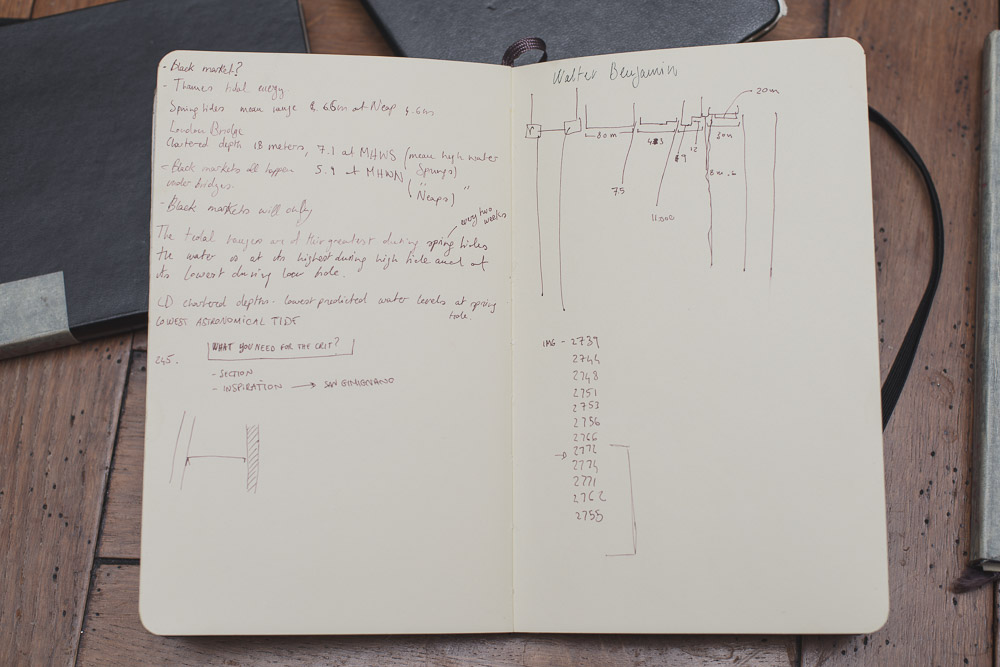 - Black market?
- Thames tidal energy
Spring tides mean range & 6.6m at Neap 4.6m
London Bridge
Chartered depth 1.8 meters, 7.1 at MHWS (mean high water
Springs)
- Black markets all happen 5.9 at MHWN (" Neaps) "
under bridges.
- Black markets will only
every two
weeks
The tidal ranges are at their greatest during spring tides
the water is at its highest during high tide and at
its lowest during low tide.
CD chartered depths - lowest predicted water levels at spring
tide.
LOWEST ASTRONOMICAL TIDE
WHAT YOU NEED FOR THE CRIT?
245.
- SECTION
- INSPIRATION → SAN GIMIGNANO
Walter Benjamin
20m
80m
30m
12
7.5
IMG - 2739
2744
2748
2751
2753
2756
2766
→ 2772
2774
2771
2762
2755